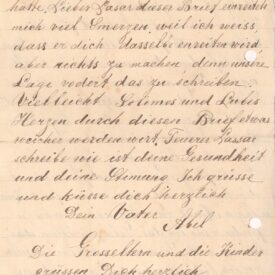 hatte. Lieber Lasar dieser Brief
mich viel Smerzen, weil ich weiss,
dass er dich dasselbe wird
aber nichts zu machen denn unsre
Lage vodert das zu schreiben.
Vielleicht und Liebes
Herzen durch diesen Brief etwas
weicher werden wirt, Teuerer Lassar
schreibe wie ist deine Gesundheit
und deine Stimung Ich grüsse
und küsse dich herzlich
Dein Vater
Abel
Die Grosseltern und die Kinder
grüssen Dich herzlich